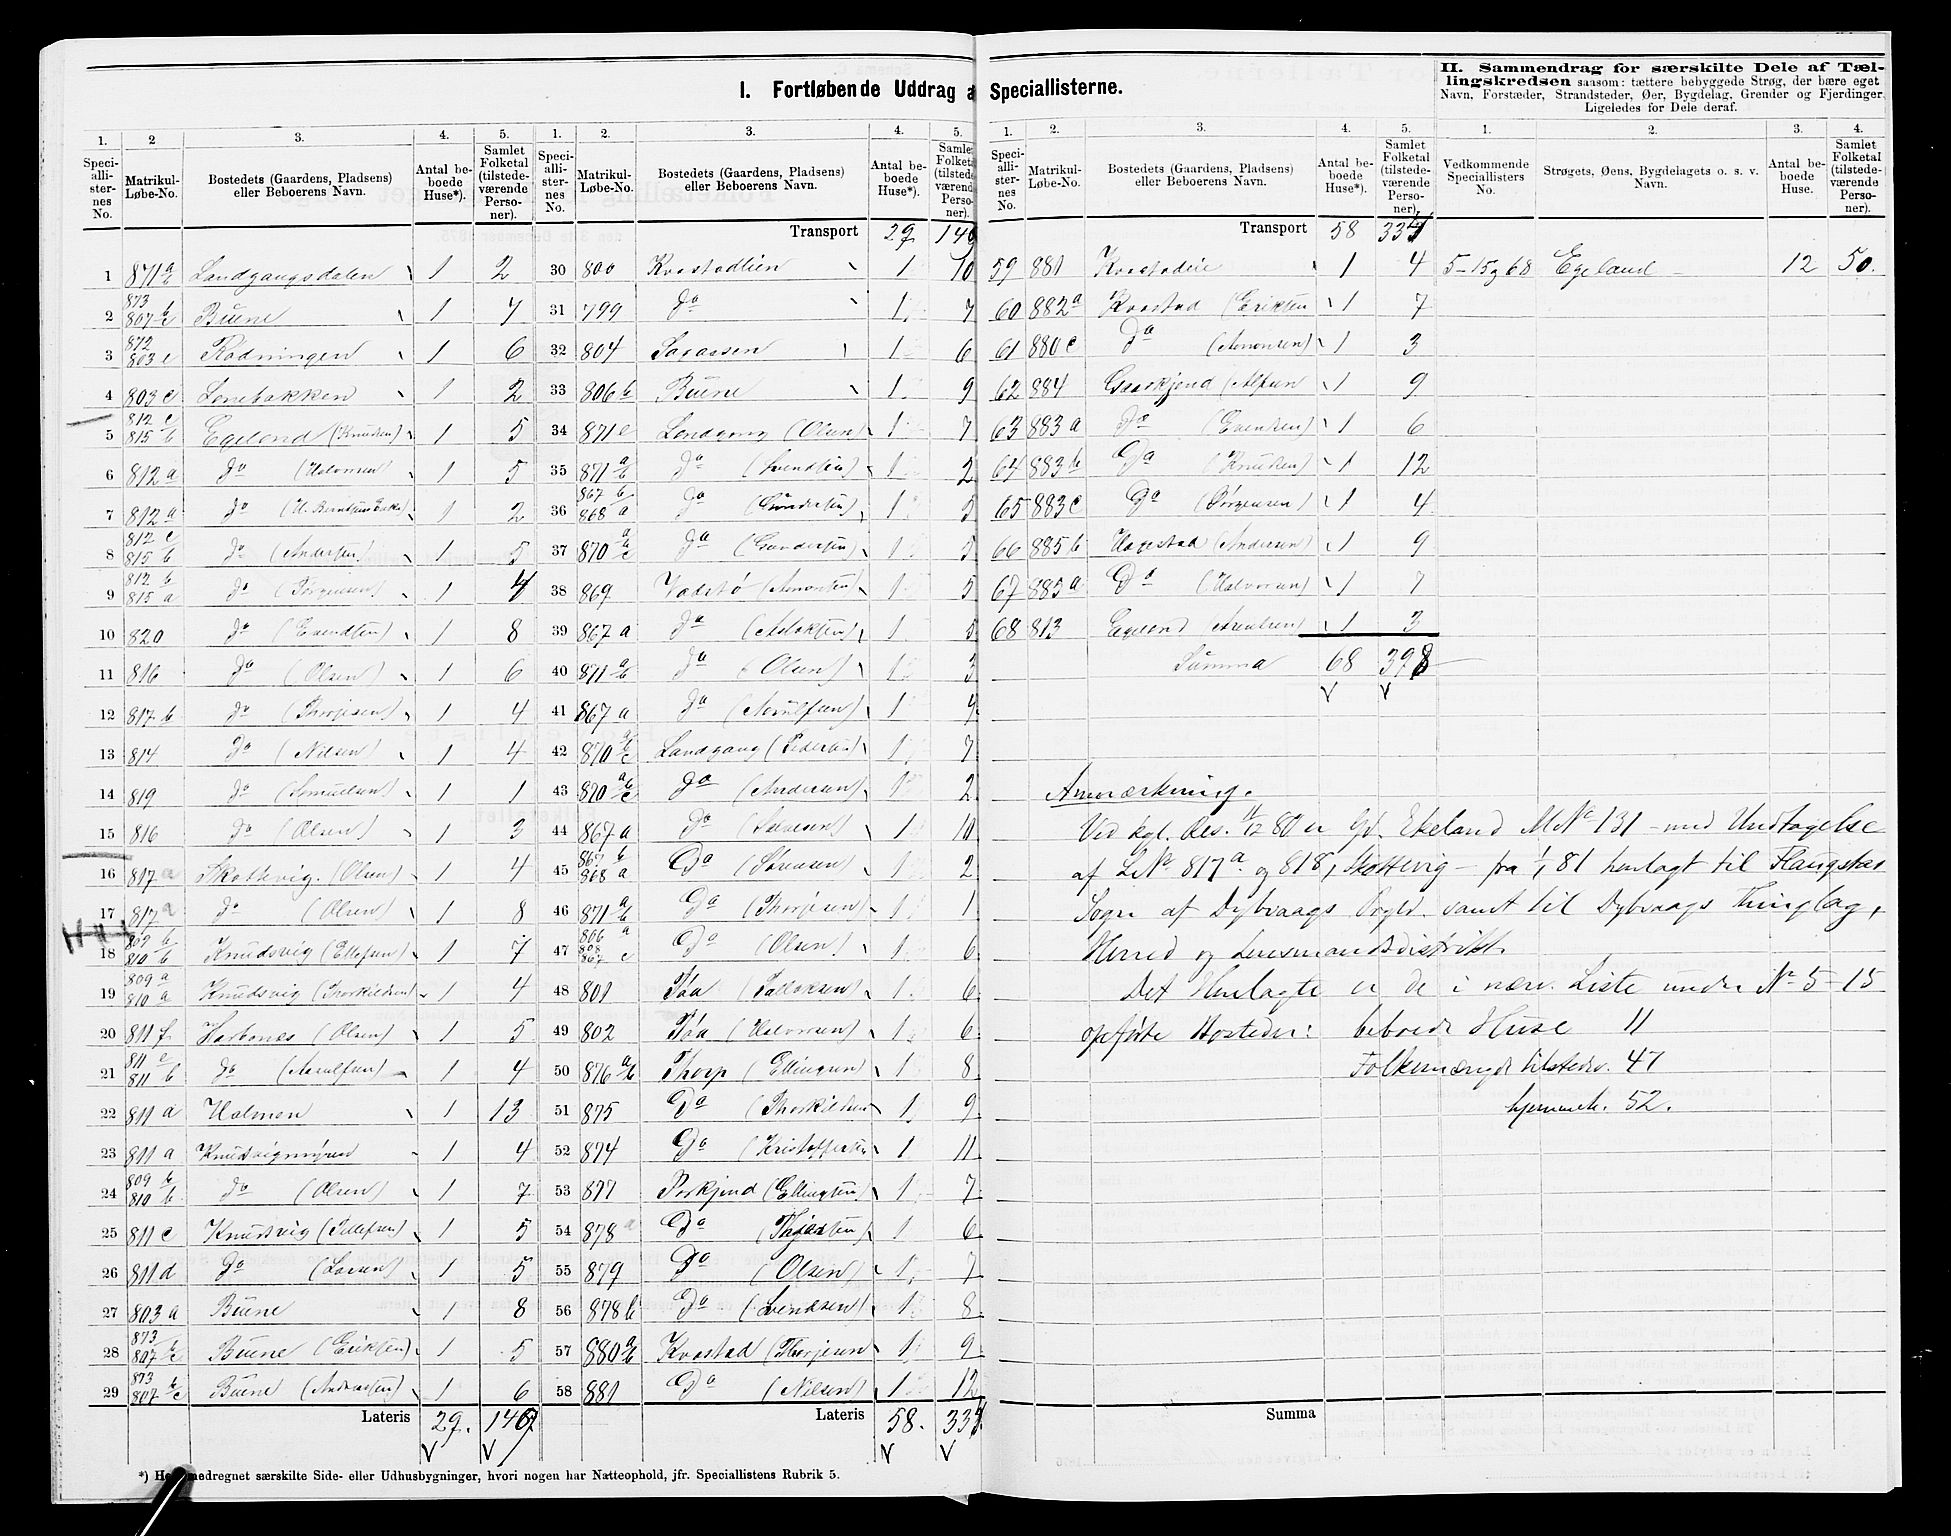 I. Fortløbende Uddrag a
Speciallisterne.
II. Sammendrag for særskilte Dele af Tæl-
lingskredsen saasom: tættere bebyggede Strøg, der bære eget
Navn, Forstæder, Strandsteder, Øer, Bygdelag, Grender og Fjerdinger,
Ligeledes for Dele deraf.
1. 2 3. 4. 5. 1. 2. 3. 4. 5.
Speci-alli-ster-nes No. Matrikul-Løbe-No. Bostedets (Gaardens, Pladsens) eller Beboerens Navn. Antal be-boede Huse*). Samlet Folketal (tilstede-værende Perso-ner).
Speci-alli-ster-nes No. Matrikul-Løbe-No. Bostedets (Gaardens, Pladsens) eller Beboerens Navn. Antal be-boede Huse*). Samlet Folketal (tilstede-værende Perso-ner).
Transport 29. 140
1 871 a b Landgangsdalen 1 2
2 873 807 b c Buene 1 7
3 872 803 e Rødningen 1 6
4 803 c Lonebakken 1 2
5 812 c 815 b Egeland (Knudsen) 1 5
6 812 a do (Halvorsen) 1 5
7 812 a do 1 2
8 812 c 815 b do (Andersen) 1 5
9 812 b 815 a do (Jørgensen) 1 4
10 820 do (Evendsen) 1 8
11 816 do (Olsen) 1 6
12 817 b do (Thorjusen) 1 4
13 814 do (Nilsen) 1 4
14 819 do (Samuelsen) 1 1
15 816 do (Olsen) 1 3
16 817 a Skottevig. (Olsen) 1 4
17 817 a do (Olsen) 1 8
18 809 b 810 b Knudsvig (Ellefsen) 1 7
19 809 a 810 a Knudsvig (Thorkildsen) 1 4
20 811 f Harbonæs (Olsen) 1 5
21 811 e 811 b do (Arnulfsen) 1 4
22 811 a Holmen 1 13
23 811 a Knudsvigmyren 1 4
24 809 b 810 b do (Olsen) 1 7
25 811 c Knudsvig (Tellefsen) 1 5
26 811 d do (Larsen) 1 5
27 803 a Buene 1 8
28 873 807 b c Buene (Eriksen) 1 5
29 873 807 b c Buene (Andersen) 1 6
Lateris 29. 149
30 800 Kvastadlien 1 10
31 799 do 1 7
32 804 Saaassen 1 6
33 806 b Buene 1 9
34 871 c Landgang (Olsen) 1 7
35 871 a b do (Svendsen) 1 2
36 867 b 868 a do (Gundersen) 1 5
37 870 a b c do (Gundersen) 1 5
38 869 Vadstø (Amonsen) 1 5
39 867 a do (Aslaksen) 1 5
40 871 a b do (Olsen) 1 3
41 867 a do (Arnulfsen) 1 4
42 870 a b c Landgang (Pedersen) 1 7
43 870 a b c do (Andersen) 1 2
44 867 a do 1 10
45 867 b 868 a do (Sørensen) 1 2
46 871 a b do (Thorjusen) 1 1
47 806 a 808 867 c do (Olsen) 1 6
48 801 Taa (Tallaksen) 1 6
49 802 Taa (Halvorsen) 1 6
50 876 a b Thorp (Ellingsen) 1 8
51 875 do (Thorkildsen 1 9
52 874 do (Kristoffersen 1 11
53 877 Porkjend (Ellingsen) 1 7
54 878 a do 1 6
55 879 do (Olsen) 1 7
56 878 b do (Svendsen) 1 8
57 880 a b Kvastad (Thorjusen 1 9
58 881 do (Nilsen) 1 12
Lateris 58. 334
*) medregnet særskilte Side- eller Udhusbygninger, hvori nogen har Natteophold, jfr. Speciallistens Rubrik 5.
1. 2. 3. 4. 5. 1. 2. 3. 4.
Speci-alli-ster-nes No. Matrikul-Løbe-No. Bostedets (Gaardens, Pladsens) eller Beboerens Navn. Antal be-boede Huse*). Samlet Folketal (tilstede-værende Perso-ner).
Vedkommende Speciallisters No. Strøgets, Øens, Bygdelagets o. s. v. Navn. Antal be-boede Huse. Samlet Folketal (tilstede-værende Perso-ner).
Transport 58 334
59 881 Kvastadeie 1 4 5-15 og 68 Egeland 12 50.
60 882 a Kvastad (Eriksen 1 7
61 880 c do (Amonsen) 1 3
62 884 Gaaskjend (Alfsen 1 9
63 883 a do (Evensen) 1 6
64 883 b do (Knudsen) 1 12
65 883 c do (Jørgensen) 1 4
66 885 b Hagestad (Andersen) 1 9
67 885 a do (Halvorsen) 1 7
68 813 Egeland (Arentsen) 1 3
Summa 68 398
Anmærkning.
Ved kgl. Res. 11/12 80 er Gd. Ekeland M No 131 - med Undtagelse
af L No 817 a. og 818, Skottevig - fra 1/1 81 henlagt til Flaugstad
Sogn af Dybvaags Prgld. samt til Dybvaags Thinglag,
Herred og Lensmandsdistrikt.
Det Henlagte er de i nærv. Liste under No 5-15
opførte Bosteder: beboede Huse 11
Folkemængde tilstedev. 47
hjemmeh. 52.
Summa